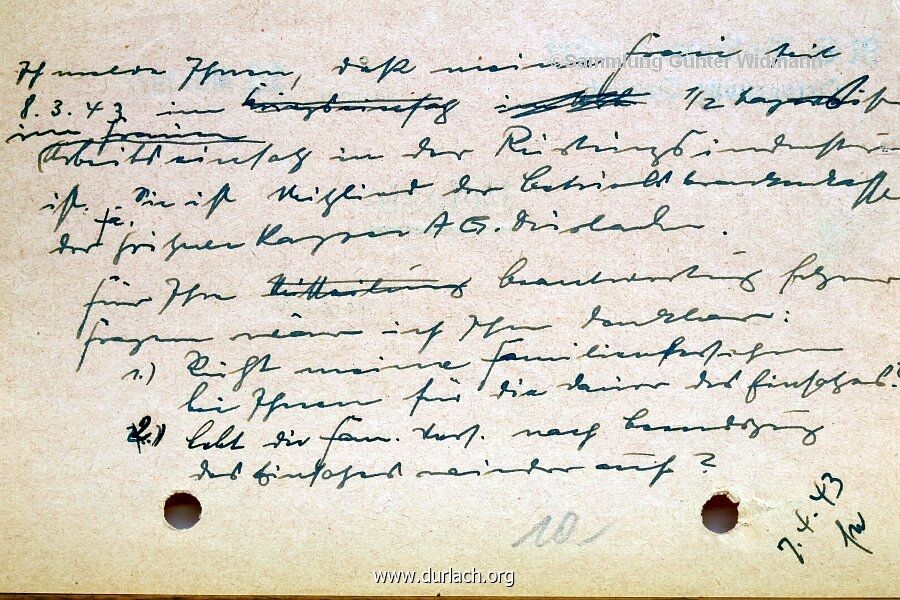 ©Sammlung Günter Widmann
Ich melde Ihnen, daß meine Frau seit
8.3.43 im Kriegseinsatz 1/2
im Frauen
Arbeitseinsatz in der Rüstungsindustrie
ist. Sie ist Mitglied der Betriebskrankenkasse
der Fa. Gritzner Kayser A G. Durlach.
Für Ihre Mitteilung Beantwortung folgender
Fragen wäre ich Ihnen dankbar:
1.) Ruht meine Familienversicherung
bei Ihnen für die Dauer des Einsatzes?
2.) Lebt die Fam. Vers. nach Beendigung
des Einsatzes wieder auf?
7.4.43
10.-
www.durlach.org